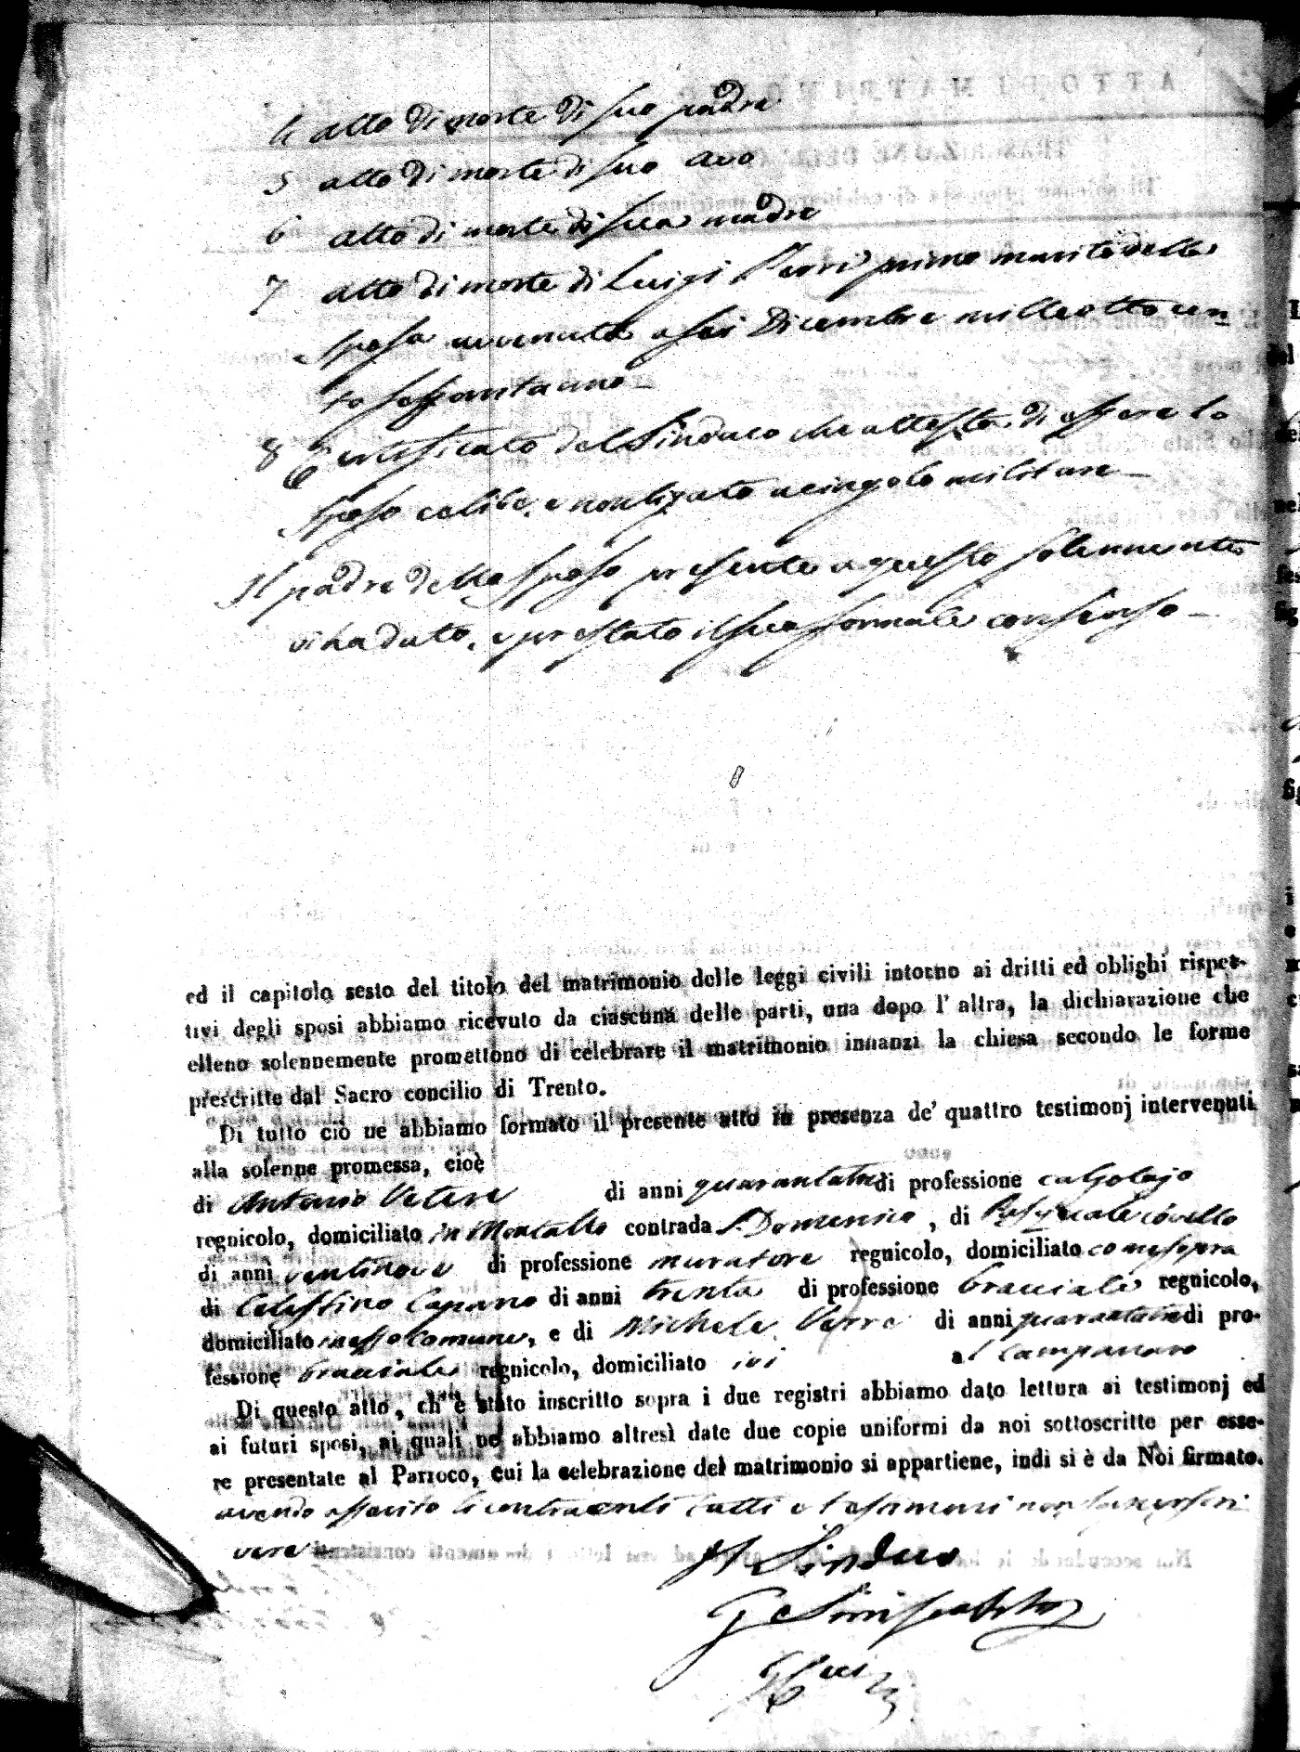 4 atto di morte di suo padre
5 atto di morte di suo avo
6 atto di morte di sua madre
7 atto di morte di Luigi primo marito della
sposa avvenuta a sei Dicembre milleottocen
to sessantauno
8 Certificato del Sindaco che attesta di essere lo
sposo celibe, e non ligato a cingolo militare
Il padre dello sposo presente a questo solennemente
vi ha dato, e prestato il suo formale consenso
ed il capitolo sesto del titolo del matrimonio delle leggi civili intorno ai dritti ed oblighi rispet-
tivi degli sposi abbiamo ricevuto da ciascuna delle parti, una dopo l' altra, la dichiarazione che
elleno solennemente promettono di celebrare il matrimonio innanzi la chiesa secondo le forme
prescritte dal Sacro concilio di Trento.
Di tutto ciò ne abbiamo formato il presente atto in presenza de' quattro testimonj intervenuti
alla solenne promessa, cioè
di Antonio Vetere di anni di professione calzolajo
regnicolo, domiciliato in Montalto contrada S. Domenico, di Pasquale Covello
di anni ventinove di professione muratore regnicolo, domiciliato come sopra
di Celestino Caparro di anni trenta di professione bracciale regnicolo,
domiciliato in esso Comune, e di Michele di anni di pro-
fessione bracciale regnicolo, domiciliato ivi al campanaro
Di questo atto, ch' è stato inscritto sopra i due registri abbiamo dato lettura ai testimonj ed
ai futuri sposi, ai quali ne abbiamo altresì date due copie uniformi da noi sottoscritte per esse-
re presentate al Parroco, cui la celebrazione del matrimonio si appartiene, indi si è da Noi firmato.
avendo asserito li contraenti tutti e testimoni non saper scri
vere
Il Sindaco